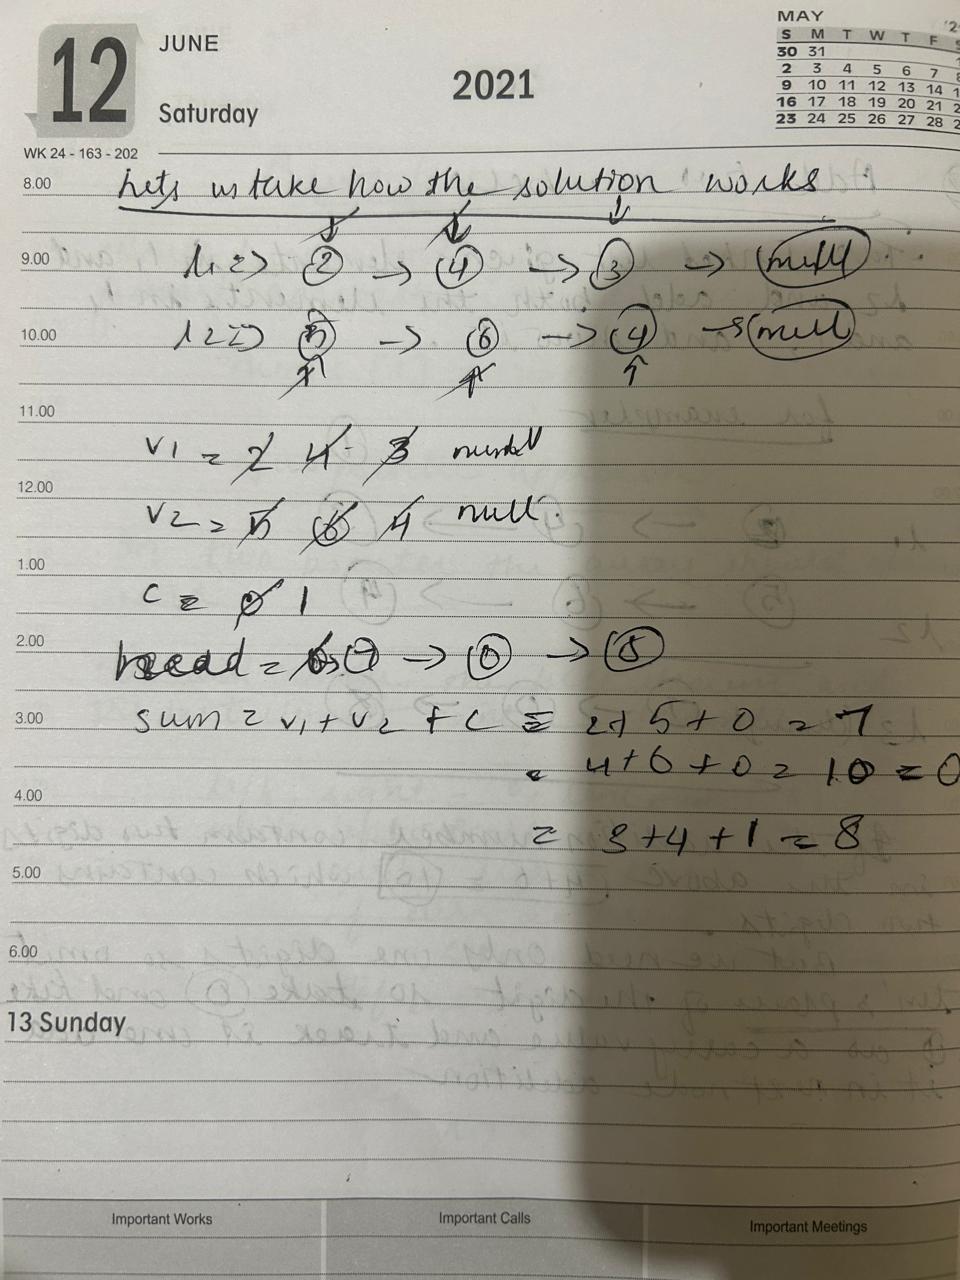 12
JUNE
2021
Saturday
WK 24 - 163 - 202
MAY '2
S M T W T F S
30 31 1
2 3 4 5 6 7 8
9 10 11 12 13 14 1
16 17 18 19 20 21 2
23 24 25 26 27 28 2
8.00 Lets us take how the solution works
9.00 l1 => 2 -> 4 -> 3 -> null
10.00 l2 => 5 -> 6 -> 4 -> null
11.00
V1 = 2 4 3 null
12.00
V2 = 5 6 4 null.
1.00
C = 0 1
2.00
head = 7 -> 0 -> 8
3.00 sum = V1 + V2 + C = 2+5+0 = 7
= 4+6+0 = 10 = 0
4.00
= 3+4+1 = 8
5.00
6.00
13 Sunday
Important Works Important Calls Important Meetings